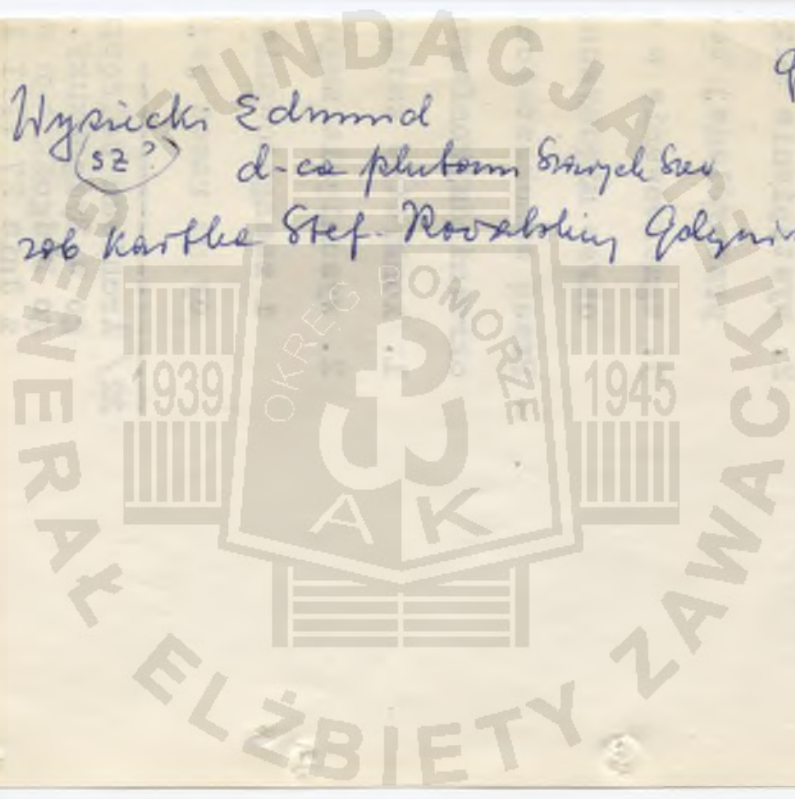 Wysiecki Edmund
sz?
d-ca plutonu Szarych Szer
zob kartka Stef. Kowalskiej Gdyni
FUNDACJA GENERAŁ ELŻBIETY ZAWACKIEJ
OKRĘG POMORZE
1939 1945
AK